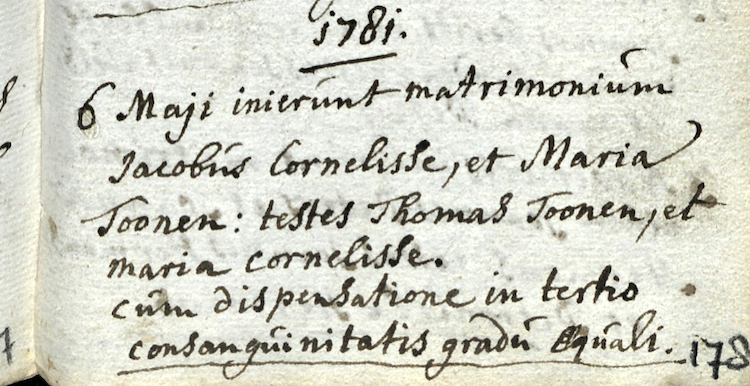 1781.
6 Maji inierunt matrimonium
Jacobus Cornelisse, et Maria
Toonen: testes Thomas Toonen, et
maria cornelisse.
cum dispensatione in tertio
consanguinitatis gradu Æquali.
178